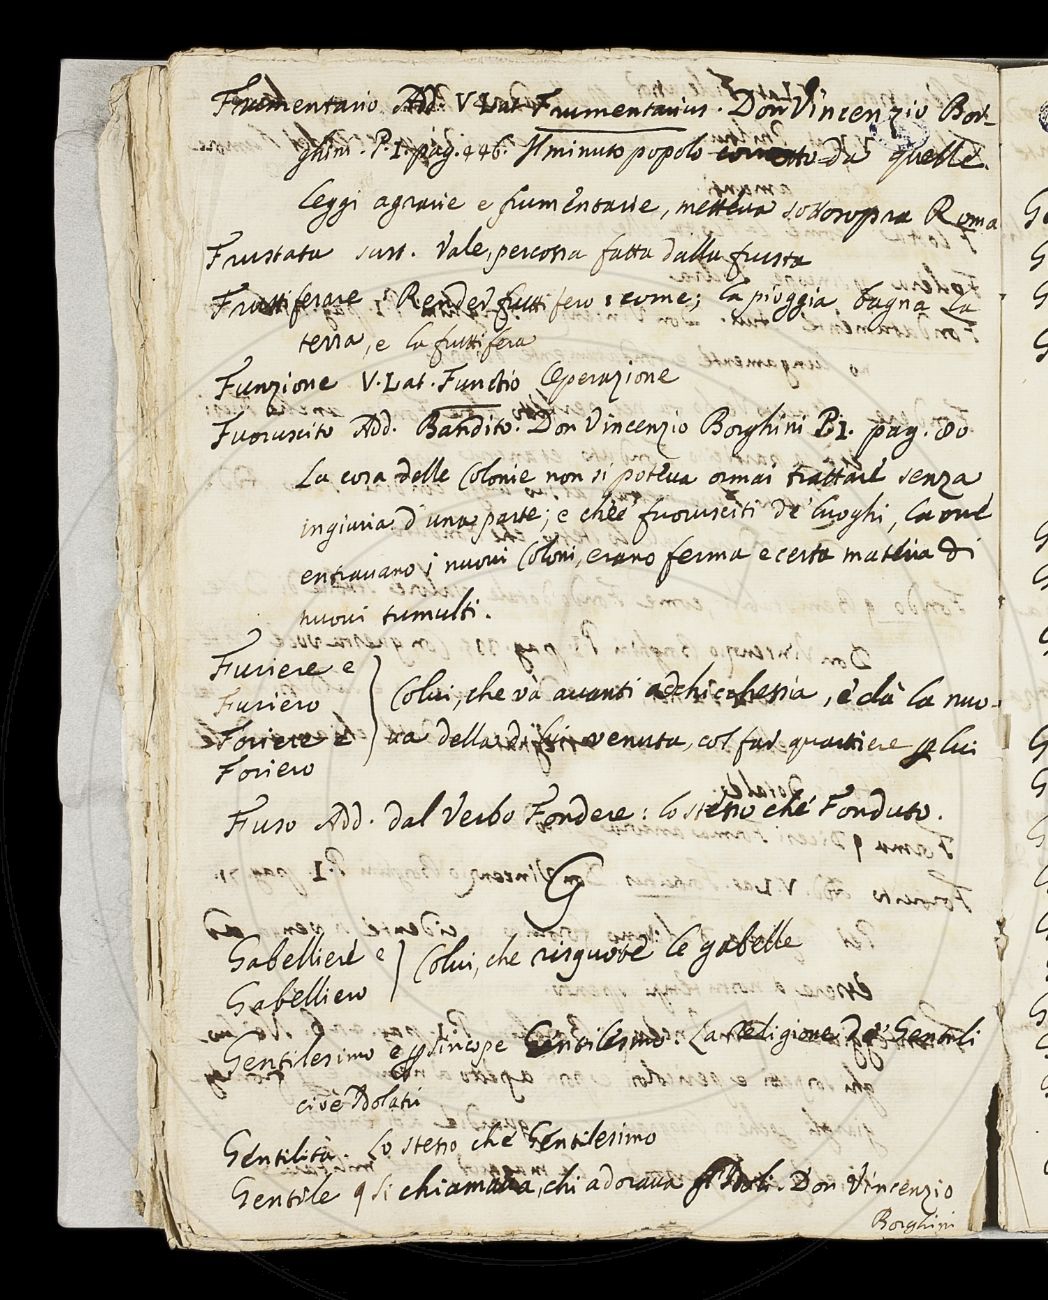 Frumentario Add. V. Lat. Frumentarius. Don Vincenzio Bor-
ghini. P. I. pag. 446. Il minuto popolo da quelle
leggi agrarie e frumentarie, metteva sottosopra Roma
Frustata sust. Vale, percossa fatta dalla frusta
Fruttiferare Render fruttifero: come; la pioggia bagna la
terra, e la fruttifera
Funzione V. Lat. Functio Operazione
Fuoruscito Add. Bandito. Don Vincenzio Borghini P. I. pag. 80
La cosa delle Colonie non si poteva ormai trattare senza
ingiuria d'una parte; e che e' fuorusciti de' luoghi, la ove
entravano i nuovi Coloni, erano ferma e certa materia di
nuovi tumulti.
Furiere e
Furiero
Foriere e
Foriero
Colui, che và avanti a chicchessia, e dà la nuo-
va della di lui venuta, col far quartiere p lui
Fuso Add. dal Verbo Fondere: lo stesso che Fonduto.
G
Gabelliere e
Gabelliero
Colui, che risquote le gabelle
Gentilesimo e p sincope Gentilesmo. La Religione de' Gentili
cioè Idolatri
Gentilità. Lo stesso che Gentilesimo
Gentile q si chiamava, chi adorava gl'Idoli. Don Vincenzio
Borghini